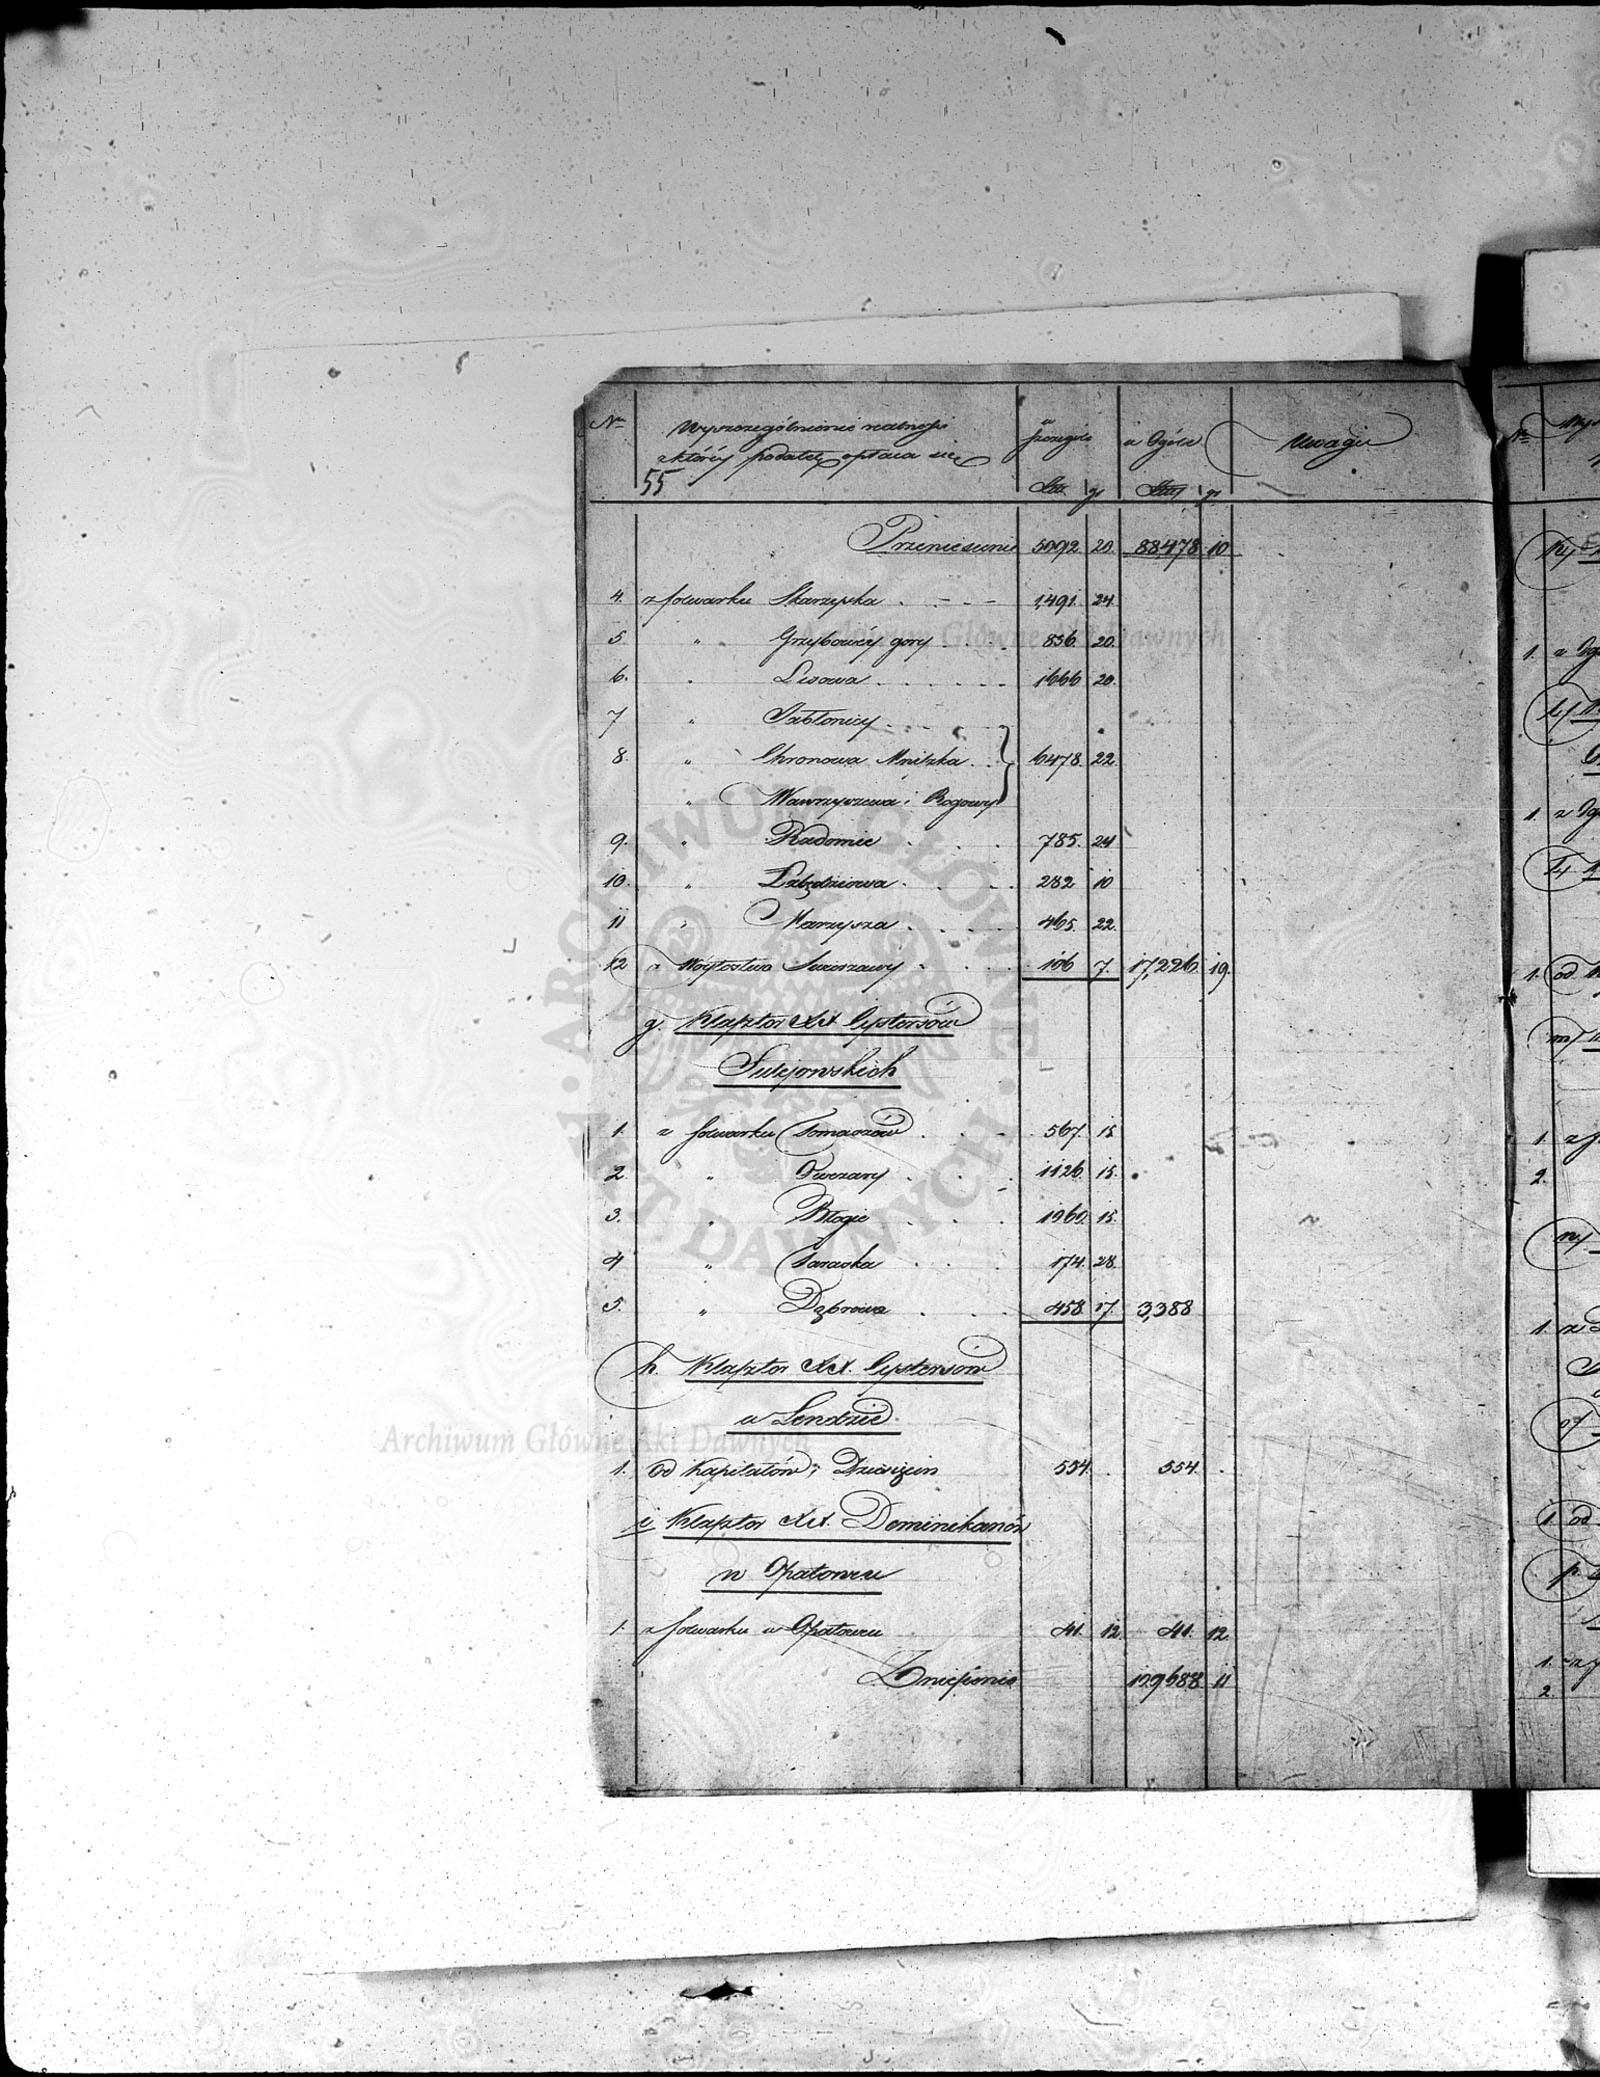 Nr Wyszczególnienie realności w szczególe w Ogóle Uwagi
z któréy podatek opłaca się Złt. gr Złt gr
55
Przeniesienie 5092 20 88478 10
4. z folwarku Skarzyska 1,491. 24
5. " Grzybowéy gory 856. 20.
6. " Lisowa 1666 20.
7 " Jabłonicy
8. " Chronowa Mniszka 6478. 22
" Wawrzyszewa i Rogowy
9. " Radomice 785. 24
10. " Łabędziowa 282 10
11 " Warzysza 465. 22.
12 z Woytostwa 106 7. 17,226. 19.
g. Klasztor XX Cystersów
Sulejowskich
1. z folwarku Tomaszów 567. 15
2 " Owczary 1126. 15.
3. " Błogie 1060. 15.
4 " Taraska 174. 28.
5. " Dąbrowa 458. 17. 3,388
h. Klasztor XX. Cystersów
w Lendzie
1. Od Kapitałów i Dziesięcin 554. 554.
i Klasztor XX. Dominikanów
w Opatowcu
1. z folwarku w Opatowcu 41. 12. 41. 12.
Zniesienie 109688 11
Archiwum Główne Akt Dawnych
Główne Akt Dawnych
ARCHIWUM GŁÓWNE AKT DAWNYCH